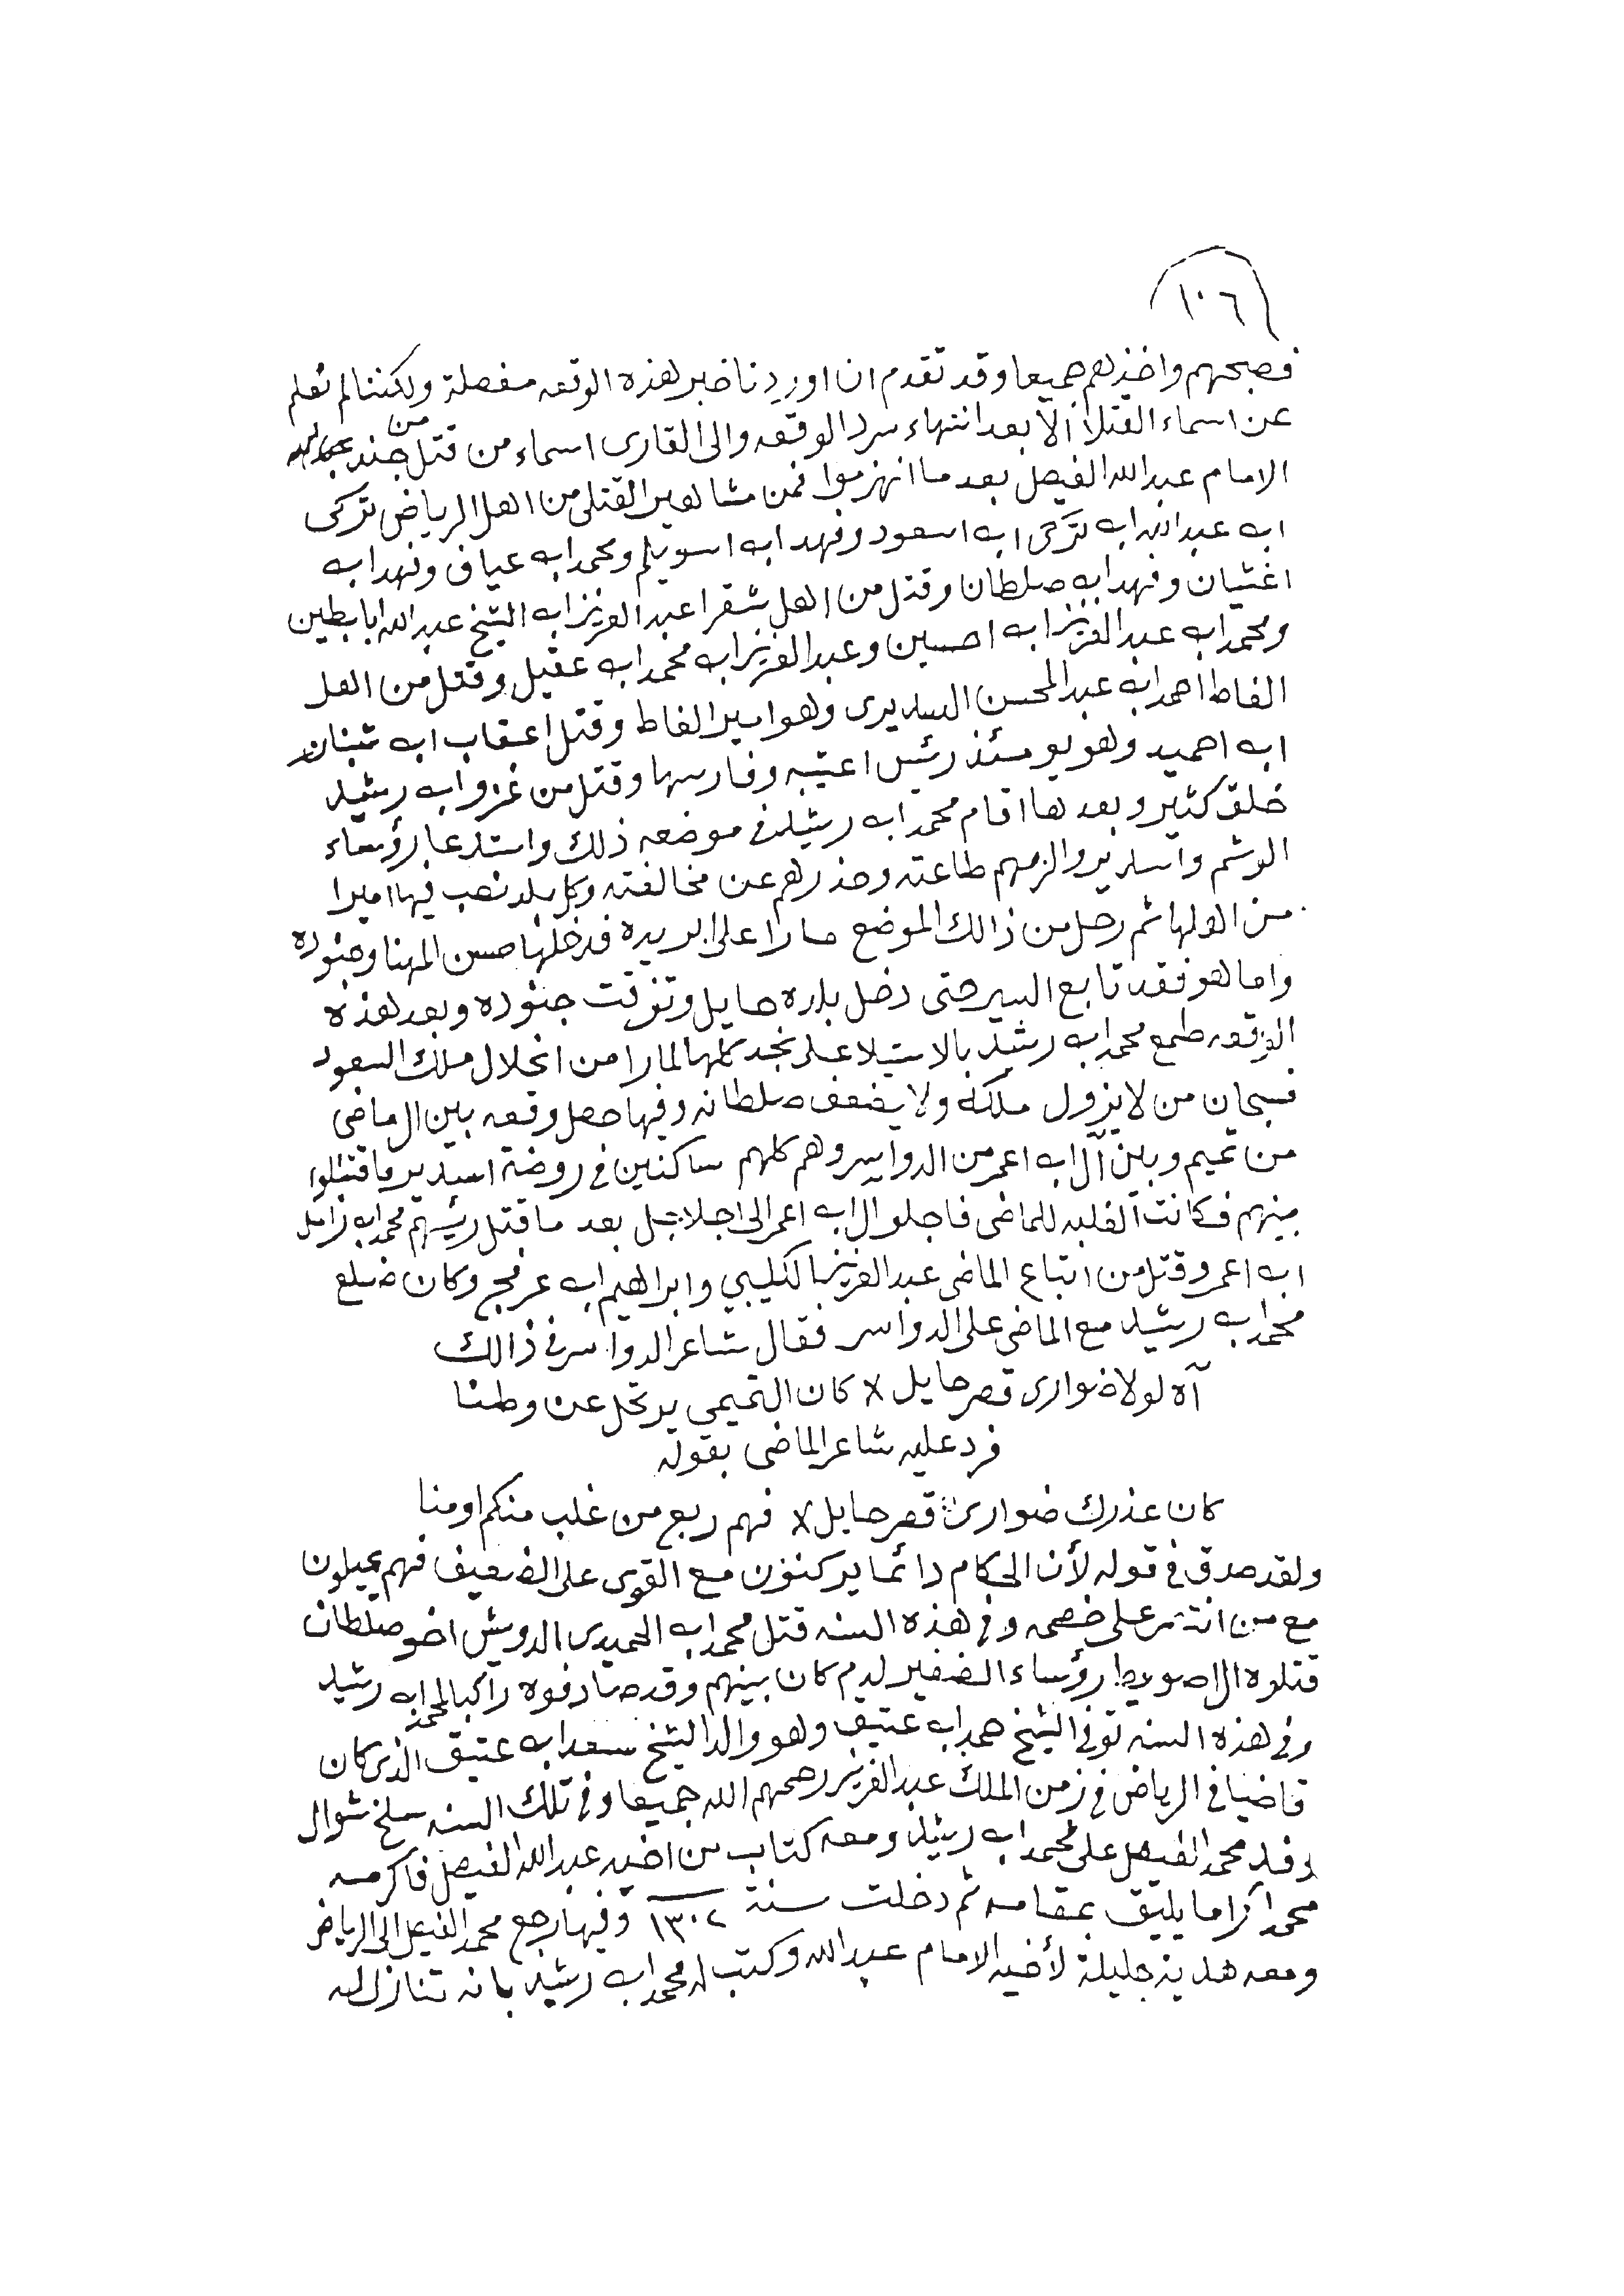 ١٠٦
فصبحهم واخذهم جميعا وقد تقدم ان اوردنا خبر هذه الوقعه مفصلة ولكننا لم نعلم
عن اسماء القتلا الا بعد انتهاء سرد الوقعه والى القارى اسماء من قتل من جند
الامام عبدالله الفيصل بعد ما انهزموا فمن مشاهير القتلى من اهل الرياض تركى
ابه عبدالله ابه تركى ابه اسعود وفهد ابه اسويلم ومحمد ابه عياف وفهد ابه
اغشيان وفهد ابه صلطان وقتل من اهل شقرا عبد العزيز ابه الشيخ عبد الله ابابطين
ومحمد ابه عبد العزيز ابه احسين وعبد العزيز ابه محمد ابه عقيل وقتل من اهل
الغاط احمد ابه عبد المحسن السديرى وهو امير الغاط وقتل اعقاب ابه شبنان
ابه احميد وهو يومئذ رئيس اعتيبه وفارسها وقتل من غزو ابه رشيد
خلق كثير وبعدها اقام محمد ابه رشيد فى موضعه ذلك واستدعا رؤساء
الوشم واسدير والزمهم طاعته وحذرهم عن مخالفته وكل بلد نصب فيها اميرا
من اهلها ثم رحل من ذالك الموضع مارا على ابريده فدخلها حسن المهنا وجنوده
واما هو فقد تابع السير حتى دخل بلده حايل وتفرقت جنوده وبعد هذه
الوقعه طمع محمد ابه رشيد بالاستيلا على نجد كلها لما را من انحلال ملك السعود
فسبحان من لا يزول ملكه ولا يضعف صلطانه وفيها حصل وقعه بين ال ماضى
من تميم وبين آل ابه اعمر من الدواسر وهم كلهم ساكنين فى روضة اسدير فاقتتلوا
بينهم فكانت الغلبه للماضى فاجلو ال ابه اعمر الى اجلاجل بعد ما قتل رئيسهم محمد ابه زامل
ابه اعمر وقتل من اتباع الماضى عبد العزيز الكليبي وابراهيم ابه عرفج وكان ضلع
محمد ابه رشيد مع الماضى على الدواسر فقال شاعر الدواسر فى ذالك
آه لولا ضوارى قصر حايل لا كان التميمي يرتحل عن وطنا
فرد عليه شاعر الماضى بقوله
كان عذرك ضوارى قصر حايل لا فهم ربع من غلب منكم اومنا
ولقد صدق فى قوله لأن الحكام دائما يركنون مع القوى على الضعيف فهم يميلون
مع من انتصر على خصمه وفى هذه السنه قتل محمد ابه الحميدى الدويش اخو صلطان
قتلوه ال اصويط رؤساء الضفير لدم كان بينهم وقد صادفوه راكبا لمحمد ابه رشيد
وفى هذه السنه توفى الشيخ حمد ابه عتيق وهو والد الشيخ سعد ابه عتيق الذى كان
قاضيا فى الرياض فى زمن الملك عبد العزيز رحمهم الله جميعا وفى تلك السنه سلخ شوال
وفد محمد الفيصل على محمد ابه رشيد ومعه كتاب من اخيه عبد الله الفيصل فاكرمه
محمد اكراما يليق بمقامه ثم دخلت سنة ١٣٠٢ وفيها رجع محمد الفيصل الى الرياض
ومعه هدية جليلة لأخيه الامام عبد الله وكتب له محمد ابه رشيد بانه تنازل له